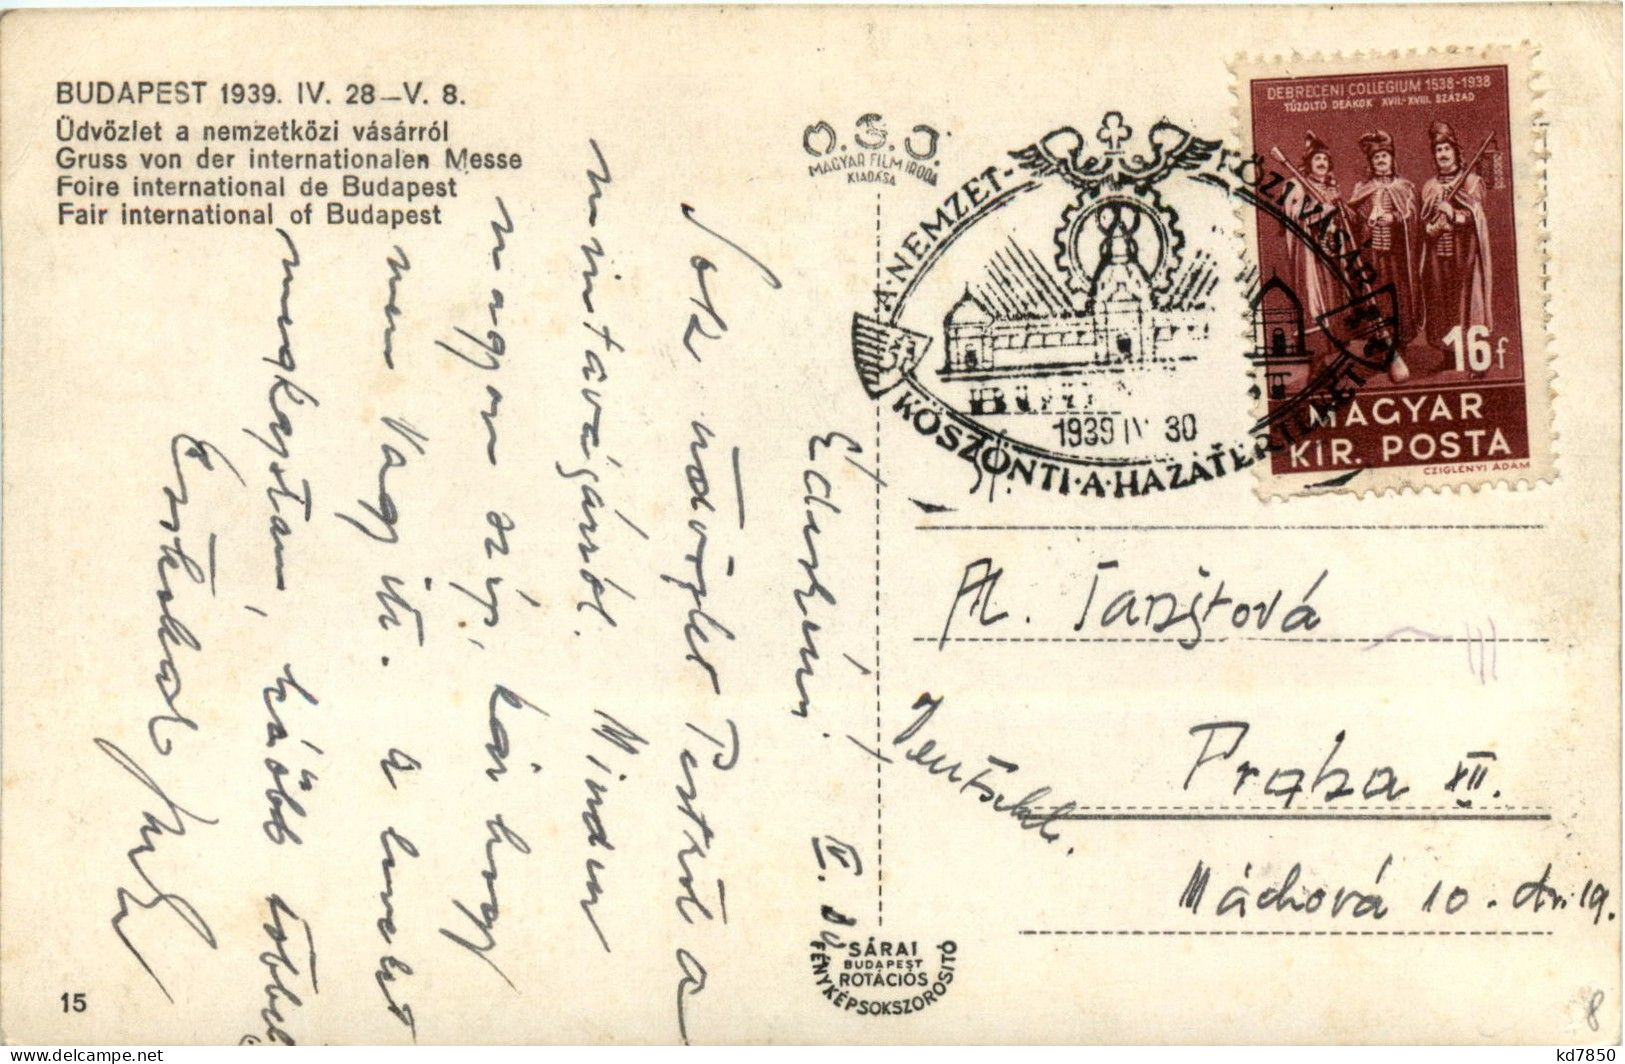 BUDAPEST 1939. IV. 28–V. 8.
Üdvözlet a nemzetközi vásárról
Gruss von der internationalen Messe
Foire international de Budapest
Fair international of Budapest
O.S.J.
MAGYAR FILM IRODA
KIADÁSA
A·NEMZETKÖZI·VÁSÁR
KÖSZÖNTI·A·HAZATÉRTEKET
1939 IV 30
DEBRECENI COLLEGIUM 1538-1938
TŰZOLTÓ DEÁKOK XVII.-XVIII. SZÁZAD
16f
MAGYAR
KIR. POSTA
CZIGLÉNYI ÁDÁM
IV. 30
Sok üdvözlet Pestről a
mintavásárról. Minden
nagyon szép, kár hogy
nem vagy itt. A levelet
megkaptam, később többet
Praha XII.
Máchová 10.
SÁRAI
BUDAPEST
ROTÁCIÓS
FÉNYKÉPSOKSZOROSÍTÓ
15
8
kd7850